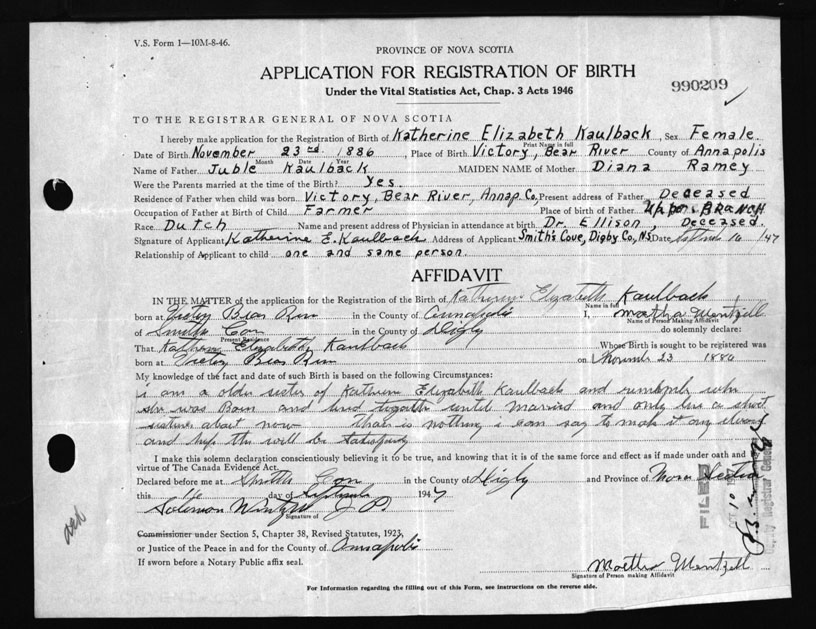 V.S. Form 1—10M-8-46.
PROVINCE OF NOVA SCOTIA
APPLICATION FOR REGISTRATION OF BIRTH
Under the Vital Statistics Act, Chap. 3 Acts 1946
990209
TO THE REGISTRAR GENERAL OF NOVA SCOTIA
I hereby make application for the Registration of Birth of Katherine Elizabeth Kaulback, Sex Female.
Print Name in full
Date of Birth November 23rd. 1886, Place of Birth Victory, Bear River County of Annapolis
Month Date Year
Name of Father Juble Kaulback MAIDEN NAME of Mother Diana Ramey
Were the Parents married at the time of the Birth? Yes.
Residence of Father when child was born Victory, Bear River, Annap Co, Present address of Father Deceased
Occupation of Father at Birth of Child Farmer Place of birth of Father Upper BRANCH
Race Dutch Name and present address of Physician in attendance at birth Dr. Ellison, Deceased.
Signature of Applicant Katherine E. Kaulback Address of Applicant Smith's Cove, Digby Co, NS, Date 16 /47
Relationship of Applicant to child one and same person.
AFFIDAVIT
IN THE MATTER of the application for the Registration of the Birth of Katherine Elizabeth Kaulback
Name in full
born at Victory Bear River in the County of Annapolis I, Martha Wentzell
Name of Person Making Affidavit
of Smith Cove in the County of Digby do solemnly declare:
Present Residence
That Kathern Elizabeth Kaulback Whose Birth is sought to be registered was
born at Victory Bear River on November 23 1886
My knowledge of the fact and date of such Birth is based on the following Circumstances:
i am a older sister of Kathern Elizabeth Kaulback and remember when
she was Born and lived together until married and only live a short
distance about now thair is nothing i can say to make it any
and hope this will be satisfactory
I make this solemn declaration conscientiously believing it to be true, and knowing that it is of the same force and effect as if made under oath and by
virtue of The Canada Evidence Act.
Declared before me at Smith Cove in the County of Digby and Province of Nova Scotia
this 16 day of September 1947
Solomon J P
Signature of
Commissioner under Section 5, Chapter 38, Revised Statutes, 1923,
or Justice of the Peace in and for the County of Annapolis
If sworn before a Notary Public affix seal.
Martha Wentzell
Signature of Person making Affidavit
For Information regarding the filling out of this Form, see instructions on the reverse side.
FILED
Deputy Registrar General